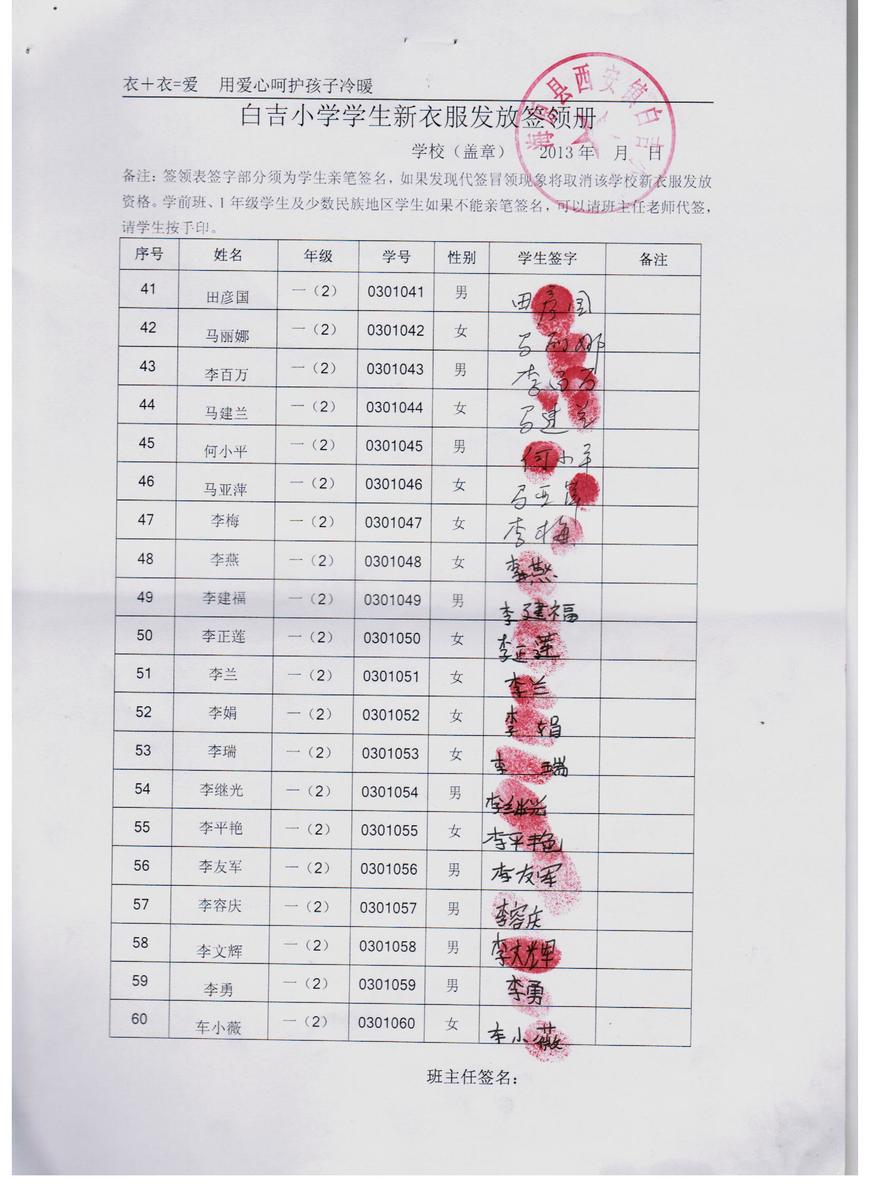 衣＋衣=爱 用爱心呵护孩子冷暖
白吉小学学生新衣服发放签领册
海原县西安镇白吉
学校（盖章） 2013 年 月 日
备注：签领表签字部分须为学生亲笔签名，如果发现代签冒领现象将取消该学校新衣服发放
资格。学前班、1 年级学生及少数民族地区学生如果不能亲笔签名，可以请班主任老师代签，
请学生按手印。
序号 姓名 年级 学号 性别 学生签字 备注
41 田彦国 一（2） 0301041 男 田彦国
42 马丽娜 一（2） 0301042 女 马丽娜
43 李百万 一（2） 0301043 男 李百万
44 马建兰 一（2） 0301044 女 马建兰
45 何小平 一（2） 0301045 男 何小平
46 马亚萍 一（2） 0301046 女 马亚萍
47 李梅 一（2） 0301047 女 李梅
48 李燕 一（2） 0301048 女 李燕
49 李建福 一（2） 0301049 男 李建福
50 李正莲 一（2） 0301050 女 李正莲
51 李兰 一（2） 0301051 女 李兰
52 李娟 一（2） 0301052 女 李娟
53 李瑞 一（2） 0301053 女 李瑞
54 李继光 一（2） 0301054 男 李继光
55 李平艳 一（2） 0301055 女 李平艳
56 李友军 一（2） 0301056 男 李友军
57 李容庆 一（2） 0301057 男 李容庆
58 李文辉 一（2） 0301058 男 李文辉
59 李勇 一（2） 0301059 男 李勇
60 车小薇 一（2） 0301060 女 车小薇
班主任签名：